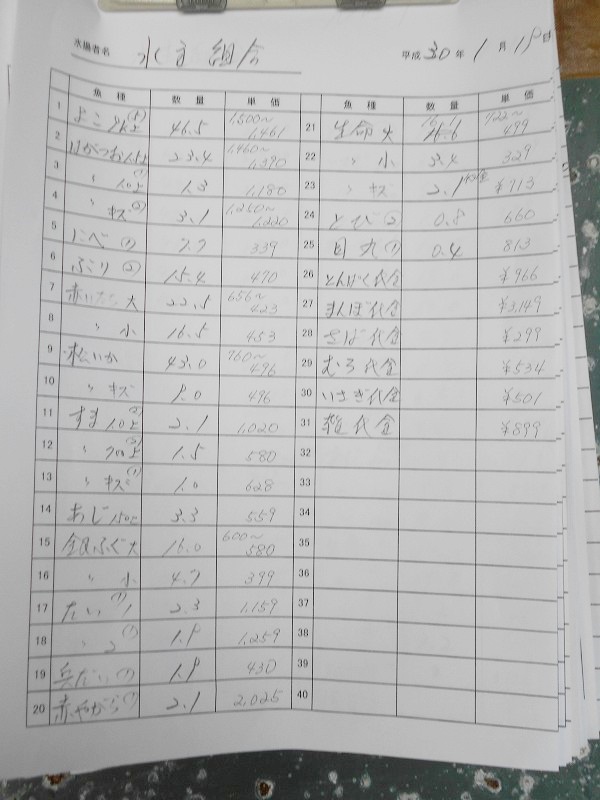 水揚者名 水主組合 平成30年1月18日
魚種 数量 単価
1 よこ2K上 46.5 1,500～1,461
2 23.4 1,460～1,390
3 〃 1.0上 1.3 1,180
4 〃 キズ 3.1 1,260～1,220
5 にべ 7.7 339
6 ぶり 15.4 470
7 赤いか 大 22.5 656～423
8 〃 小 16.5 453
9 松いか 43.0 760～496
10 〃 キズ 1.0 496
11 すま 1.0上 2.1 1,020
12 〃 700上 1.5 580
13 〃 キズ (1) 1.0 628
14 あじ 3.3 559
15 銀ふぐ 大 16.0 600～580
16 〃 小 4.7 399
17 たい 2.3 1,159
18 〃 1.8 1,259
19 兵だい 1.8 430
20 赤やがら 2.1 2,025
魚種 数量 単価
21 大 722～499
22 〃 小 3.4 329
23 〃 キズ 2.1 ¥713
24 とび 0.8 660
25 目丸 0.4 813
26 代金 ¥966
27 まんぼ代金 ¥3,149
28 さば代金 ¥299
29 むろ代金 ¥534
30 いさぎ代金 ¥501
31 雑代金 ¥899
32
33
34
35
36
37
38
39
40